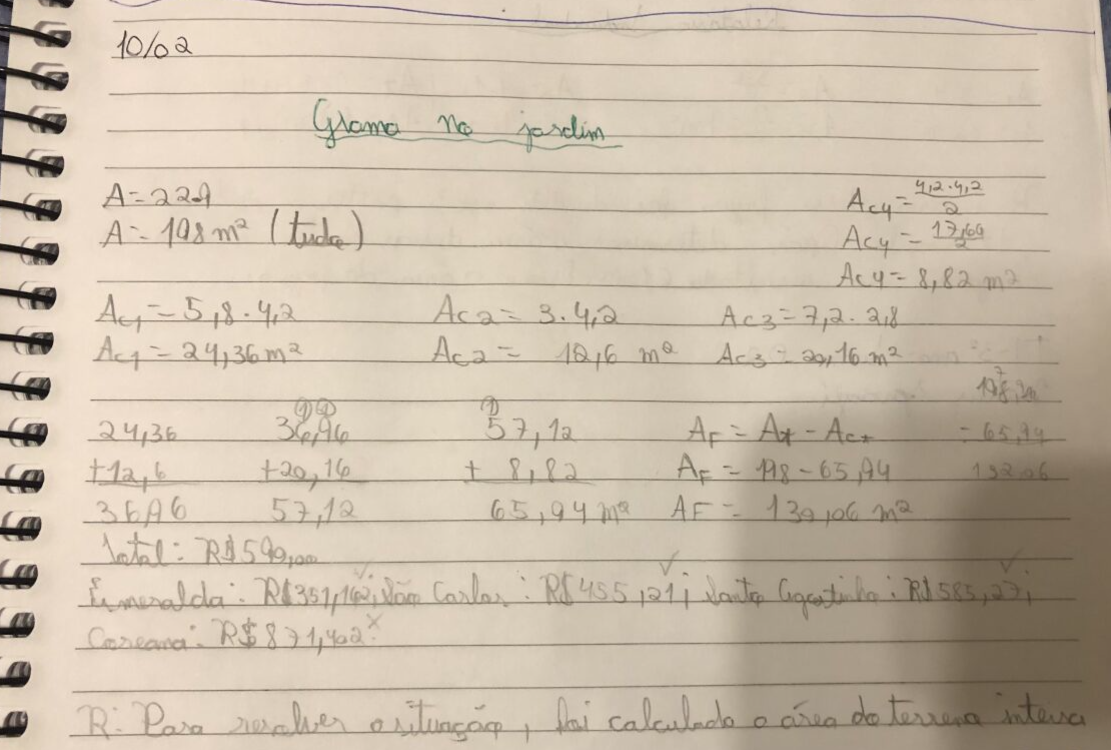 10/02
Grama no jardim
A = 22.9
A = 198 m² (tudo)
Ac4 = 4,2 . 4,2 / 2
Ac4 = 17,64 / 2
Ac4 = 8,82 m²
Ac1 = 5,8 . 4,2 Ac2 = 3 . 4,2 Ac3 = 7,2 . 2,8
Ac1 = 24,36 m² Ac2 = 12,6 m² Ac3 = 20,16 m²
24,36 36,96 57,12 AF = At - Act - 65,94
+12,6 +20,16 + 8,82 AF = 198 - 65,94 132,06
36,96 57,12 65,94 m² AF = 132,06 m²
Total: R$ 590,00
Esmeralda: R$351,162; São Carlos: R$455,21; Santo Agostinho: R$585,27;
Coreana: R$871,402.
R: Para resolver a situação, foi calculado a área do terreno inteira